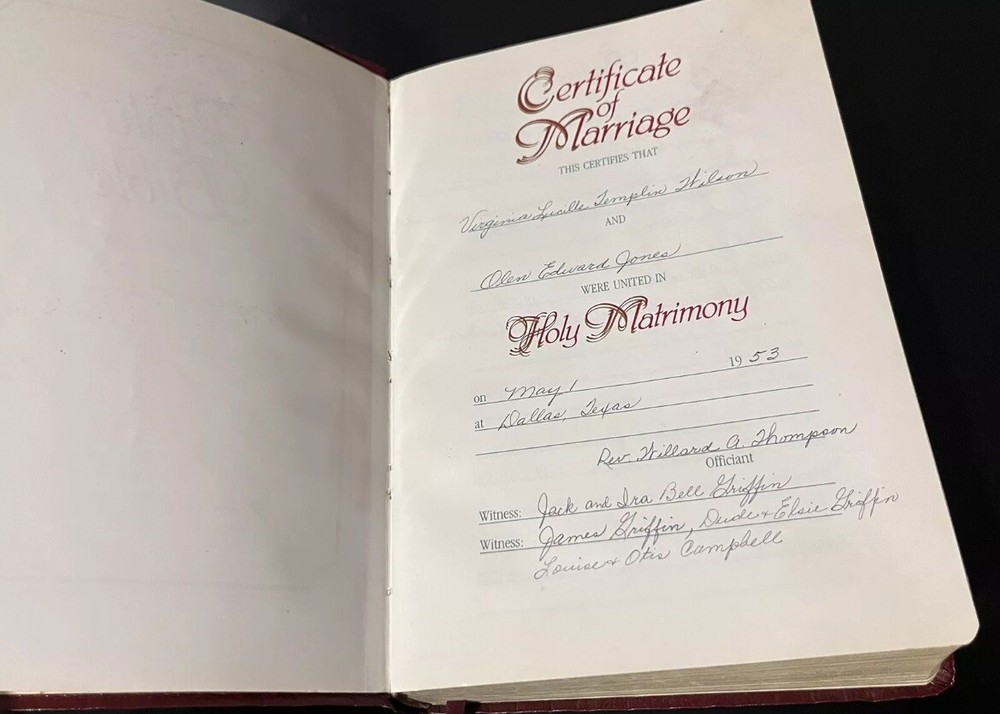 Certificate
of
Marriage
THIS CERTIFIES THAT
Virginia Lucille Templin Wilson
AND
Olen Edward Jones
WERE UNITED IN
Holy Matrimony
on May 1 1953
at Dallas, Texas
Rev. Willard A. Thompson
Officiant
Witness: Jack and Ira Bell Griffin
Witness: James Griffin, Dude & Elsie Griffin
Louise & Otis Campbell